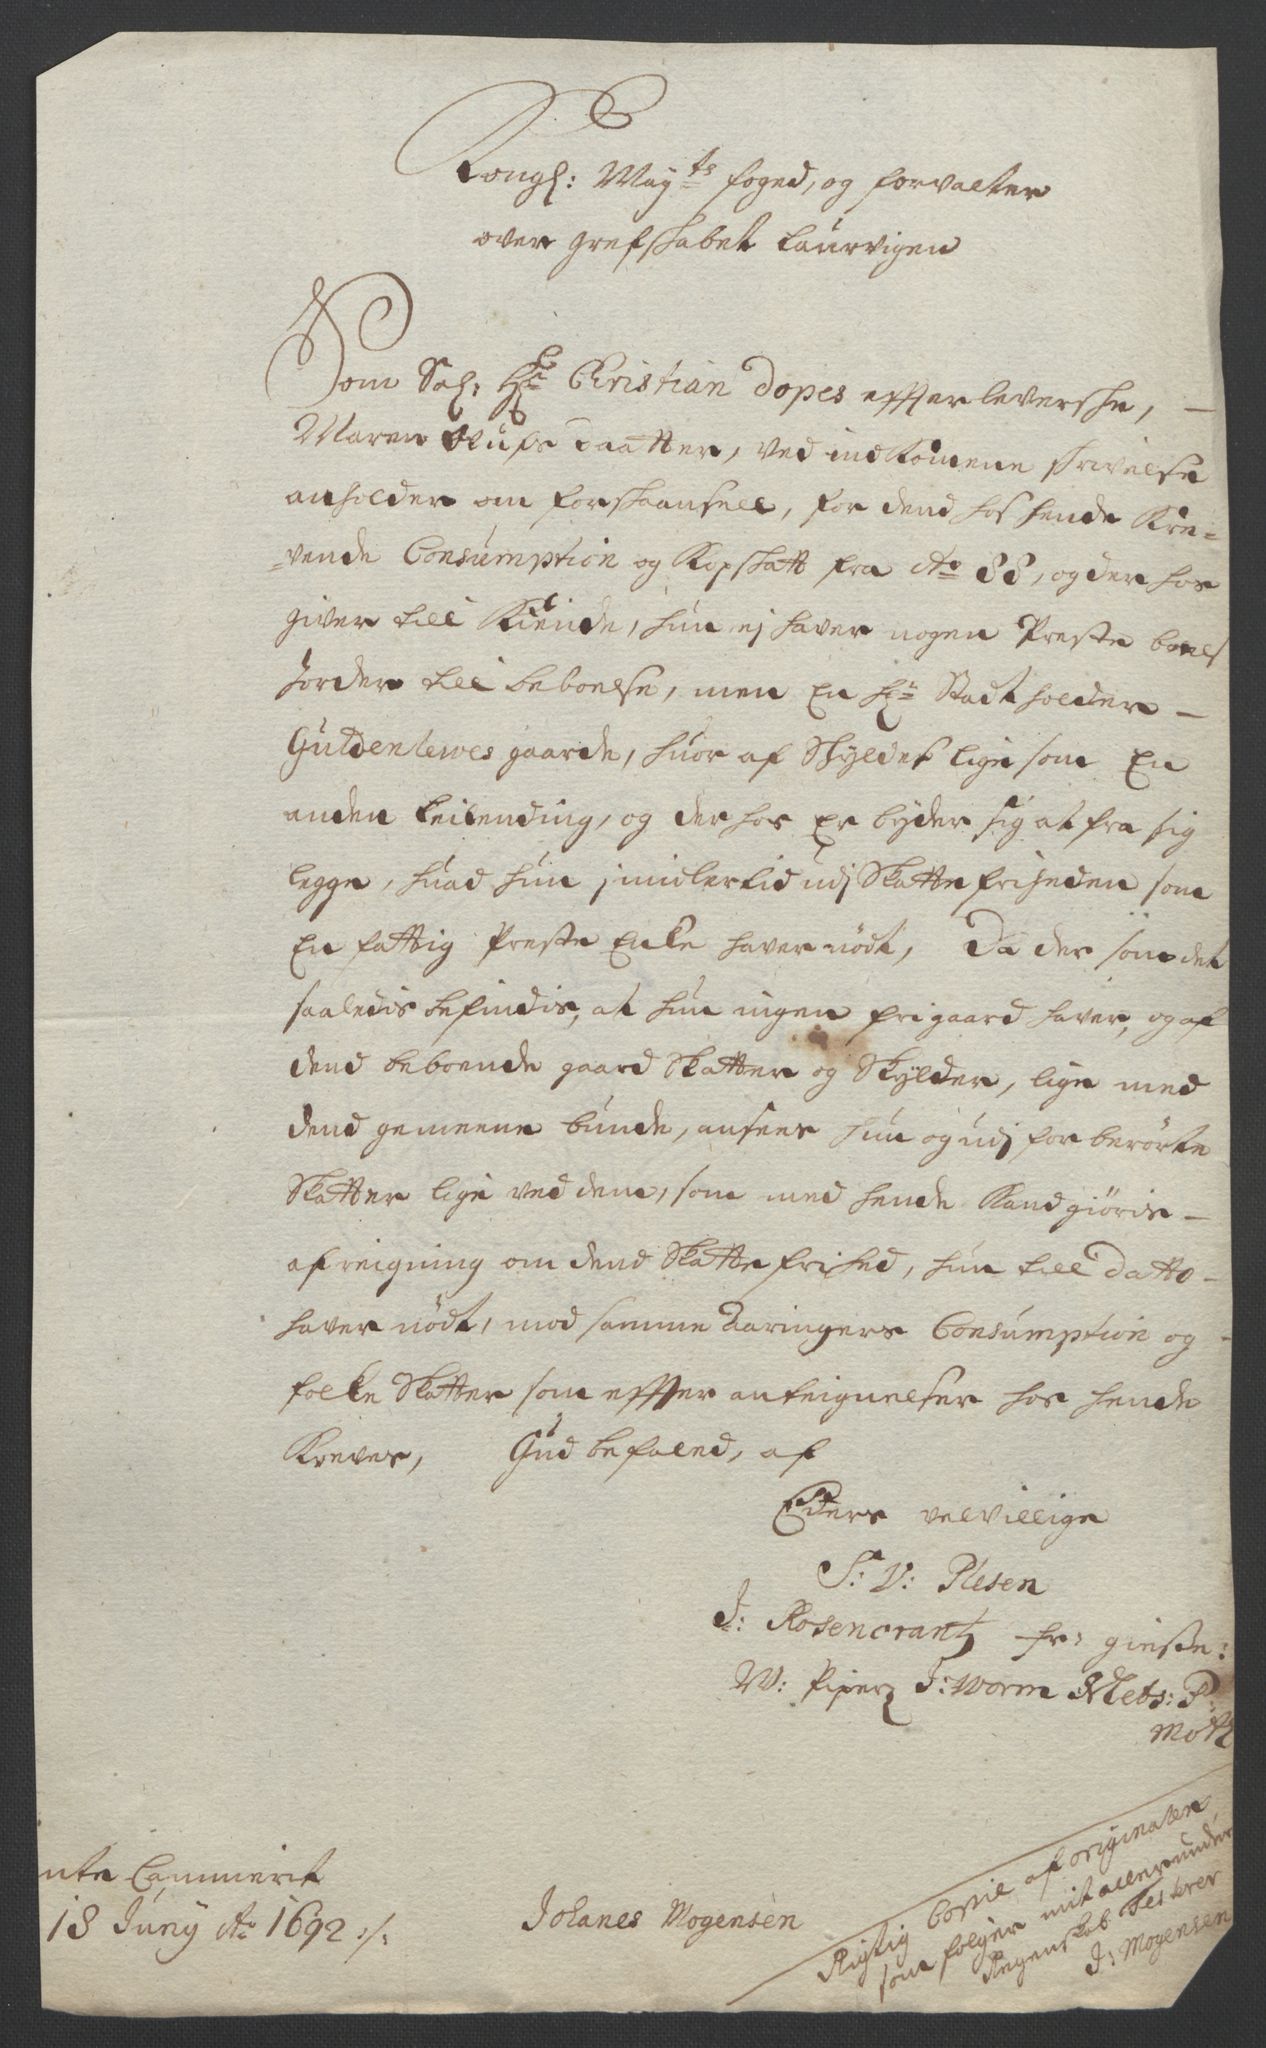 Kongl: May:ts foged, og forvalter
over grefskabet Laurvigen
Som Sal: Hr: Christian Dopes effterleverske, –
Maren Olufs daatter, ved indkomene skrivelse
anholder om forskaansell, for dend hos hende Kre-
-vende Consumption og Kopskatt fra Ao 88, og der hos
giver till Kiende, hun ej haver nogen Preste boels
Jorder till beboelse, men En Hr: Stadtholder –
Guldenlewes gaarde, huor af Skyldes lige som En
anden Leilending, og der hos Er byder sig at fra sig
legge, huad hun jmidlertid udj Skatte friheden som
En fattig Preste Encke haver nödt, Da der som det
saaledis befindis, at hun ingen frigaard haver, og af
dend beboende gaard Skatter og Skylder, lige med
dend gemeene bunde, ansees hun og udj forberörte
Skatter lige ved dem, som med hende Kand giöris –
afreigning om dend Skatte frihed, hun till Datto –
haver nödt, mod samme Aaringers Consumption og –
folke Skatter som effter anteignelser hos hende
Kreves, Gud befaled, af
Eders velvillige
S: V: Plesen
J: Rosencrantz Fr: giese:
W: Piper J: Worm Mets: P:
Motz
nte Cammerit
18 Juny Ao 1692 :/:
Johanes Mogensen
Rigtig Copie af originalen
som følger mit allerunder
Regenskab Testerer
J: Mogensen